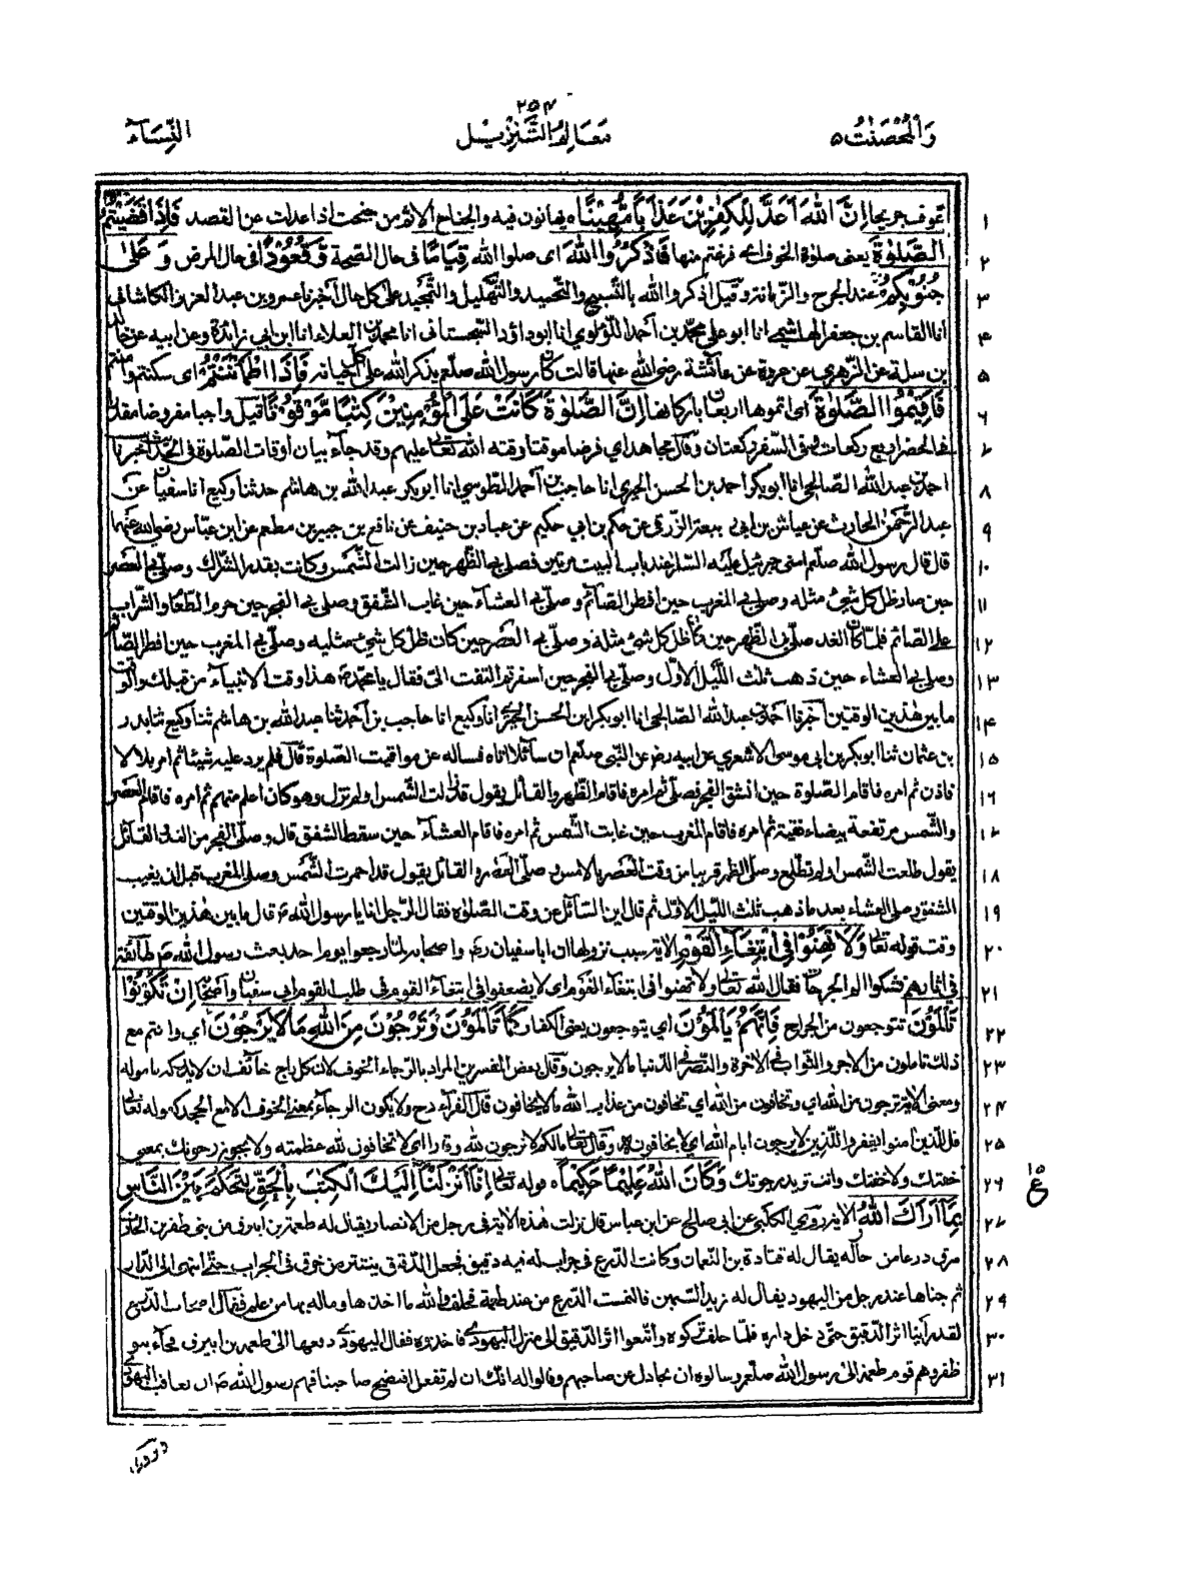 ۲۵۴
وَالْمُحْصَنٰتُ ۵
مَعَالِمُ التَّنْزِيْل
النِّسَآء
۱ عوف جريحا اِنَّ اللّٰهَ اَعَدَّ لِلْكٰفِرِيْنَ عَذَابًا مُّهِيْنًا ه يهانون فيه والجناح الاثم من جنحت اذا عدلت عن القصد فَاِذَا قَضَيْتُمُ
۲ الصَّلٰوةَ يعنى صلوة الخوف اى فرغتم منها فَاذْكُرُوا اللّٰهَ اى صلوا الله قِيَامًا فى حال الصحة وَّقُعُوْدًا فى حال المرض وَّ عَلٰى
۳ جُنُوْبِكُمْ عند الجرح والزمانة وقيل اذكروا الله بالتسبيح والتحميد والتهليل والتمجيد على كل حال اخبرنا عمرو بن عبد العزيز الكاشانى
۴ انا القاسم بن جعفر الهاشمى انا ابو على محمد بن احمد اللؤلوى انا ابو داؤد السجستانى انا محمد بن العلاء انا ابن ابي زائدة عن ابيه عن خالد
۵ بن سلمة عن الزهرى عن عروة عن عائشة رضى الله عنها قالت كان رسول الله صلعم يذكر الله على كل احيانه فَاِذَا اطْمَاْنَنْتُمْ اى سكنتم وامنتم
۶ فَاَقِيْمُوا الصَّلٰوةَ اى اتموها اربعا باركانها اِنَّ الصَّلٰوةَ كَانَتْ عَلَى الْمُؤْمِنِيْنَ كِتٰبًا مَّوْقُوْتًا قيل واجبا مفروضا مقدرا
۷ فى الحضر اربع ركعات وفى السفر ركعتان وقال مجاهد اي فرضا موقتا وقته الله تعالى عليهم وقد جاء بيان اوقات الصلوة فى الحديث اخبرنا
۸ احمد بن عبد الله الصالحى انا ابو بكر احمد بن الحسن الحيرى انا حاجب بن احمد الطوسي انا ابو بكر عبد الله بن هاشم حدثنا وكيع انا سفيان عن
۹ عبد الرحمن بن الحارث عن عياش بن ابى ربيعة الزرقى عن حكيم بن ابي حكيم عن عباد بن حنيف عن نافع بن جبير بن مطعم عن ابن عباس رضى الله عنهما
۱۰ قال قال رسول الله صلعم امنى جبرئيل عليه السلام عند باب البيت مرتين فصلى بى الظهر حين زالت الشمس وكانت بقدر الشراك وصلى بى العصر
۱۱ حين صار ظل كل شئ مثله وصلى بى المغرب حين افطر الصائم وصلى بى العشاء حين غاب الشفق وصلى بى الفجر حين حرم الطعام والشراب
۱۲ على الصائم فلما كان الغد صلى بى الظهر حين كان ظل كل شئ مثله وصلى بى العصر حين كان ظل كل شئ مثليه وصلى بى المغرب حين افطر الصائم
۱۳ وصلى بى العشاء حين ذهب ثلث الليل الاول وصلى بى الفجر حين اسفر ثم التفت الى فقال يا محمد هذا وقت الانبياء من قبلك والوقت
۱۴ ما بين هذين الوقتين اخبرنا احمد بن عبد الله الصالحى انا ابو بكر ابن الحسن الحيرى انا وكيع انا حاجب بن احمد ثنا عبد الله بن هاشم ثنا وكيع ثنا بدر
۱۵ بن عثمان ثنا ابو بكر بن ابى موسى الاشعري عن ابيه رض عن النبى صلعم ان سائلا اتاه فساله عن مواقيت الصلوة قال فلم يرد عليه شيئا ثم امر بلالا
۱۶ فاذن ثم امره فاقام الصلوة حين انشق الفجر فصلى ثم امره فاقام الظهر والقائل يقول قد زالت الشمس اولم تزل وهو كان اعلم منهم ثم امره فاقام العصر
۱۷ والشمس مرتفعة بيضاء نقية ثم امره فاقام المغرب حين غابت الشمس ثم امره فاقام العشاء حين سقط الشفق قال وصلى الفجر من الغد والقائل
۱۸ يقول طلعت الشمس اولم تطلع وصلى الظهر قريبا من وقت العصر بالامس وصلى العصر والقائل يقول قد احمرت الشمس وصلى المغرب قبل ان يغيب
۱۹ الشفق وصلى العشاء بعد ما ذهب ثلث الليل الاول ثم قال اين السائل عن وقت الصلوة فقال الرجل انا يا رسول الله قال ما بين هذين الوقتين
۲۰ وقت قوله تعالى وَلَا تَهِنُوْا فِى ابْتِغَاءِ الْقَوْمِ الاية سبب نزولها ان ابا سفيان واصحابه لما رجعوا يوم احد بعث رسول الله ص طائفة
۲۱ فى اثارهم فشكوا الم الجراحات فقال الله تعالى ولا تهنوا فى ابتغاء القوم اى لا يضعفوا فى ابتغاء القوم فى طلب القوم ابى سفيان واصحابه اِنْ تَكُوْنُوْا
۲۲ تَاْلَمُوْنَ تتوجعون من الجراح فَاِنَّهُمْ يَاْلَمُوْنَ اي يتوجعون يعنى الكفار كَمَا تَاْلَمُوْنَ وَتَرْجُوْنَ مِنَ اللّٰهِ مَا لَا يَرْجُوْنَ اي وانتم مع
۲۳ ذلك تاملون من الاجر والثواب فى الاخرة والنصر فى الدنيا ما لا يرجون وقال بعض المفسرين المراد بالرجاء الخوف لان كل راج خائف ان لا يدرك ماموله
۲۴ ومعنى الاية ترجون من الله اي وتخافون من الله اي تخافون من عذاب الله ما لا يخافون قال الفراء رح ولا يكون الرجاء بمعنى الخوف الا مع الجحد كقوله تعالى
۲۵ قل للذين امنوا يغفروا للذين لا يرجون ايام الله اي لا يخافون وقال تعالى مالكم لا ترجون لله وقارا اى لا تخافون لله عظمته ولا يجوز رجوتك بمعنى
۲۶ خفتك ولا خفتك وانت تريد رجوتك وَكَانَ اللّٰهُ عَلِيْمًا حَكِيْمًا ه قوله تعالى اِنَّا اَنْزَلْنَا اِلَيْكَ الْكِتٰبَ بِالْحَقِّ لِتَحْكُمَ بَيْنَ النَّاسِ
۱۵ ع
۲۷ بِمَا اَرَاكَ اللّٰهُ الاية روي الكلبي عن ابى صالح عن ابن عباس قال نزلت هذه الاية فى رجل من الانصار يقال له طعمة بن ابيرق من بنى ظفر بن الحارث
۲۸ سرق درعا من جار له يقال له قتادة بن النعمان وكانت الدرع فى جراب له فيه دقيق فجعل الدقيق ينتثر من خرق فى الجراب حتى انتهى الى الدار
۲۹ ثم خباها عند رجل من اليهود يقال له زيد السمين فالتمست الدرع من عند طعمة فحلف بالله ما اخذها وماله بها من علم فقال اصحاب الدرع
۳۰ لقد راينا اثر الدقيق حتى دخل داره فلما حلف تركوه واتبعوا اثر الدقيق الى منزل اليهودى فاخذوه فقال اليهودى دفعها الى طعمة بن ابيرق فجاء بنو
۳۱ ظفر وهم قوم طعمة الى رسول الله صلعم وسالوه ان يجادل عن صاحبهم وقالوا له انك ان لم تفعل افتضح صاحبنا فهم رسول الله ص ان يعاقب اليهودى